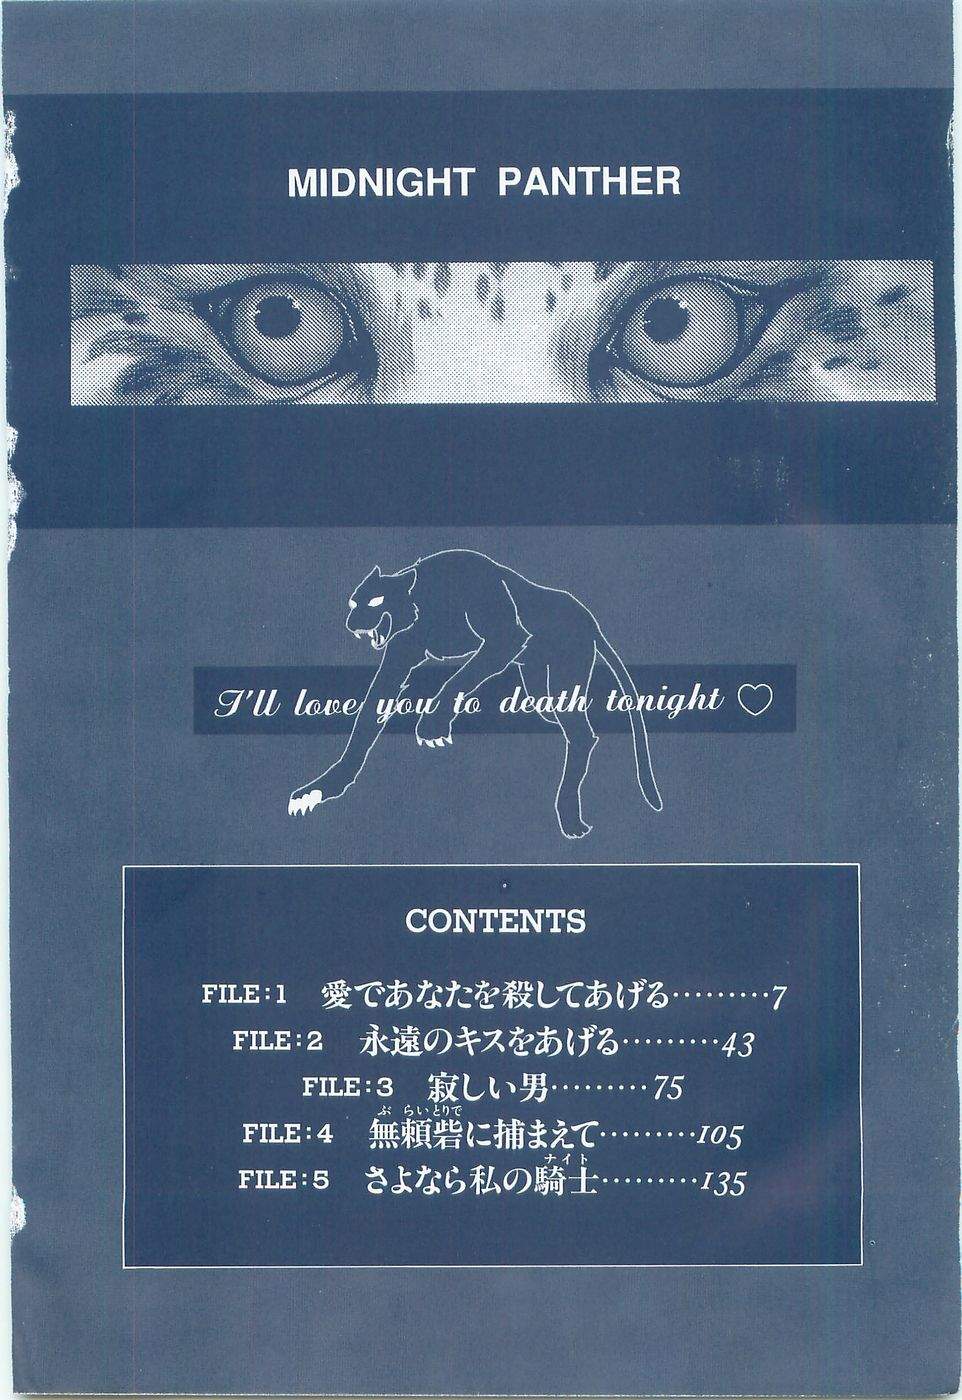 MIDNIGHT PANTHER
I'll love you to death tonight ♡
CONTENTS
FILE:1 愛であなたを殺してあげる………7
FILE:2 永遠のキスをあげる………43
FILE:3 寂しい男………75
ぶらいとりで
FILE:4 無頼砦に捕まえて………105
ナイト
FILE:5 さよなら私の騎士………135